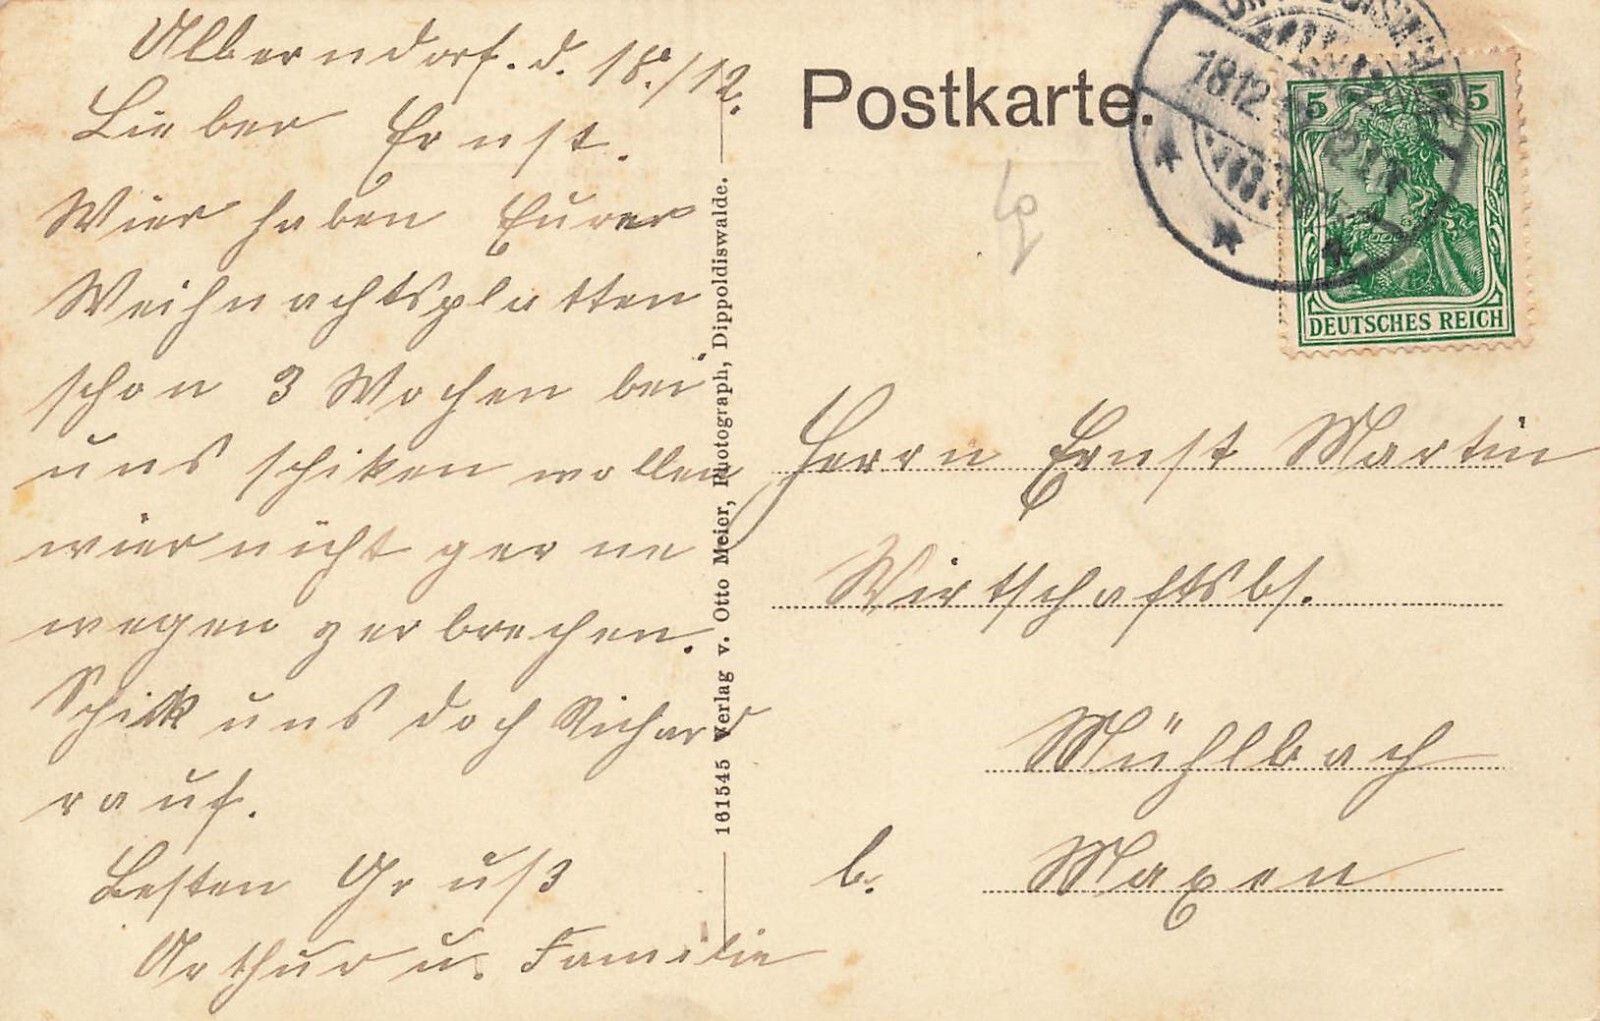 Alberndorf. d. 18./12.
Lieber Ernst.
Wier haben Eurer
Weihnachtsplatten
schon 3 Wochen bei
uns schiken wollen
wier nicht gerne
wegen zerbrechen.
Schick uns doch Richard
rauf.
Besten Gruß
Arthur u. Familie
161545 Verlag v. Otto Meier, Photograph, Dippoldiswalde.
Postkarte.
18.12.
5 5
DEUTSCHES REICH
Herrn Ernst Martin
Wirtschaftsbs.
Mühlbach
b. Maxen